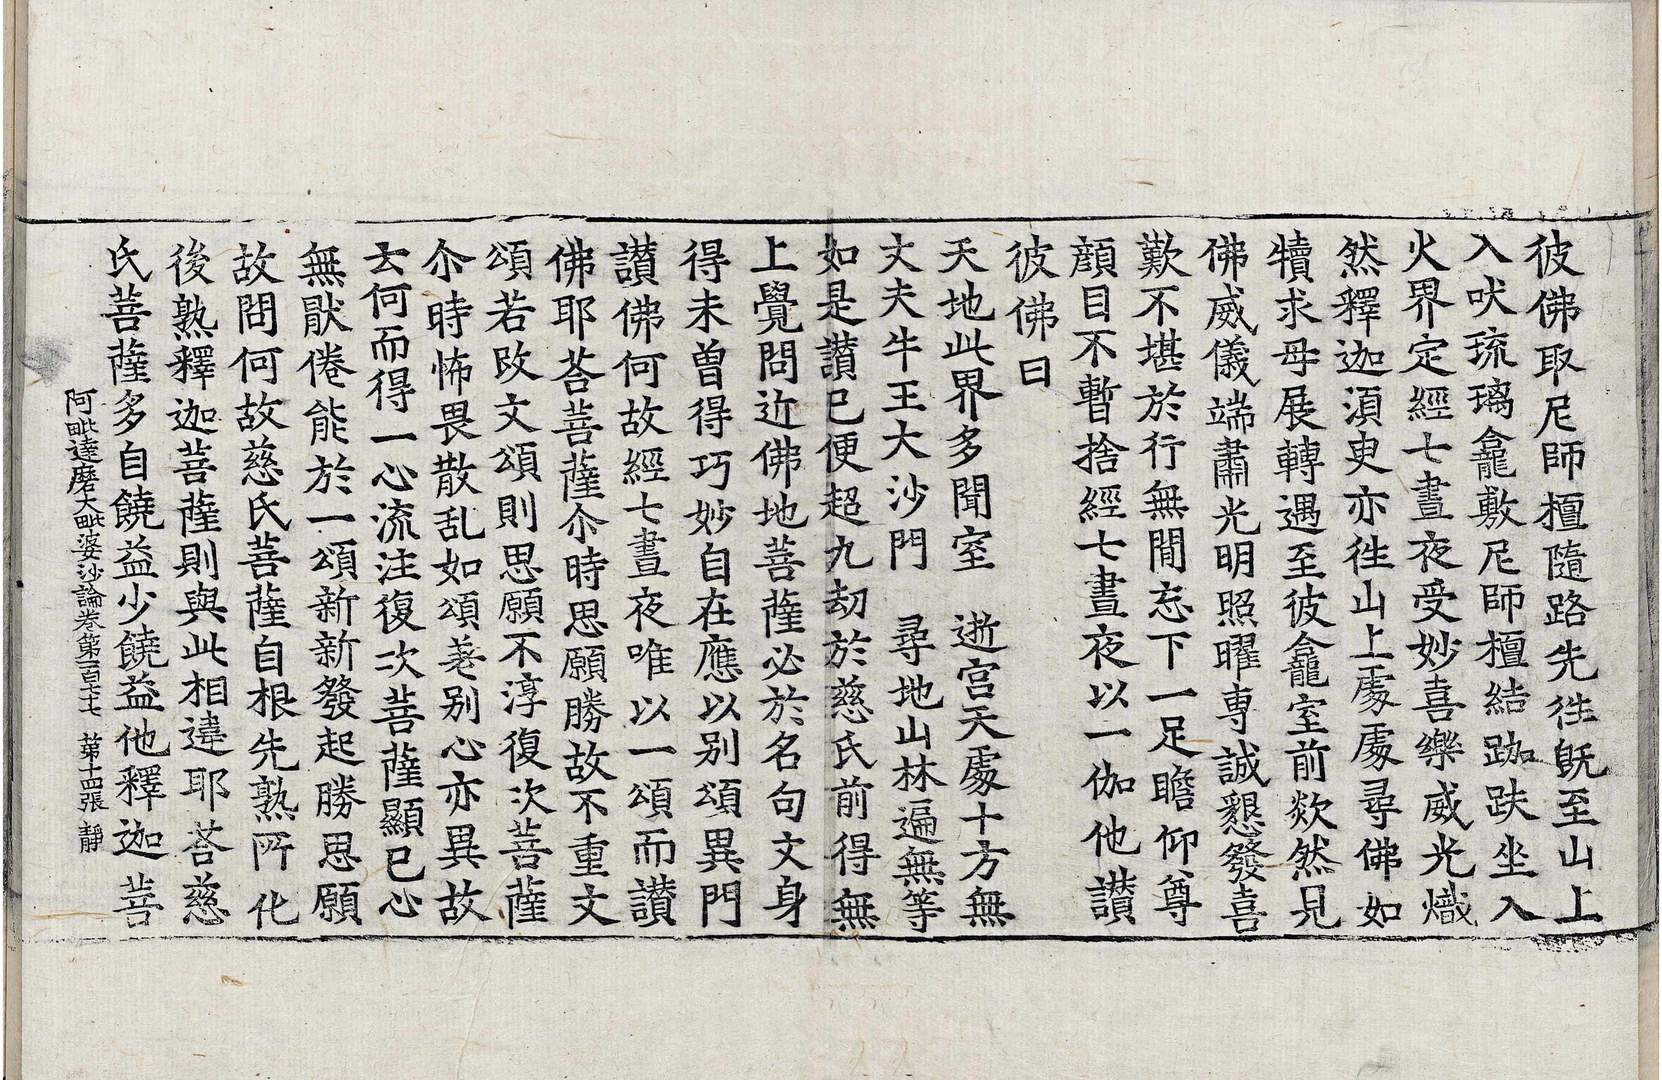 彼佛取尼師檀隨路先徃旣至山上
入吠琉璃龕敷尼師檀結跏趺坐入
火界定經七晝夜受妙喜樂威光熾
然釋迦湏臾亦徃山上處處尋佛如
犢求母展轉遇至彼龕室前欻然見
佛威儀端肅光明照曜専誠懇發喜
歎不堪於行無閒忘下一足瞻仰尊
顔目不暫捨經七晝夜以一伽他讃
彼佛曰
天地此界多聞室　逝宮天處十方無
丈夫牛王大沙門　尋地山林遍無等
如是讃已便超九劫於慈氏前得無
上覺問近佛地菩薩必於名句文身
得未曾得巧妙自在應以别頌異門
讃佛何故經七晝夜唯以一頌而讃
佛耶荅菩薩尒時思願勝故不重文
頌若改文頌則思願不淳復次菩薩
尒時怖畏散乱如頌差别心亦異故
云何而得一心流注復次菩薩顯已心
無猒倦能於一頌新新發起勝思願
故問何故慈氏菩薩自根先熟所化
後熟釋迦菩薩則與此相違耶荅慈
氏菩薩多自饒益少饒益他釋迦菩
阿毗達磨大毗婆沙論卷第一百七十七　第十四張　靜